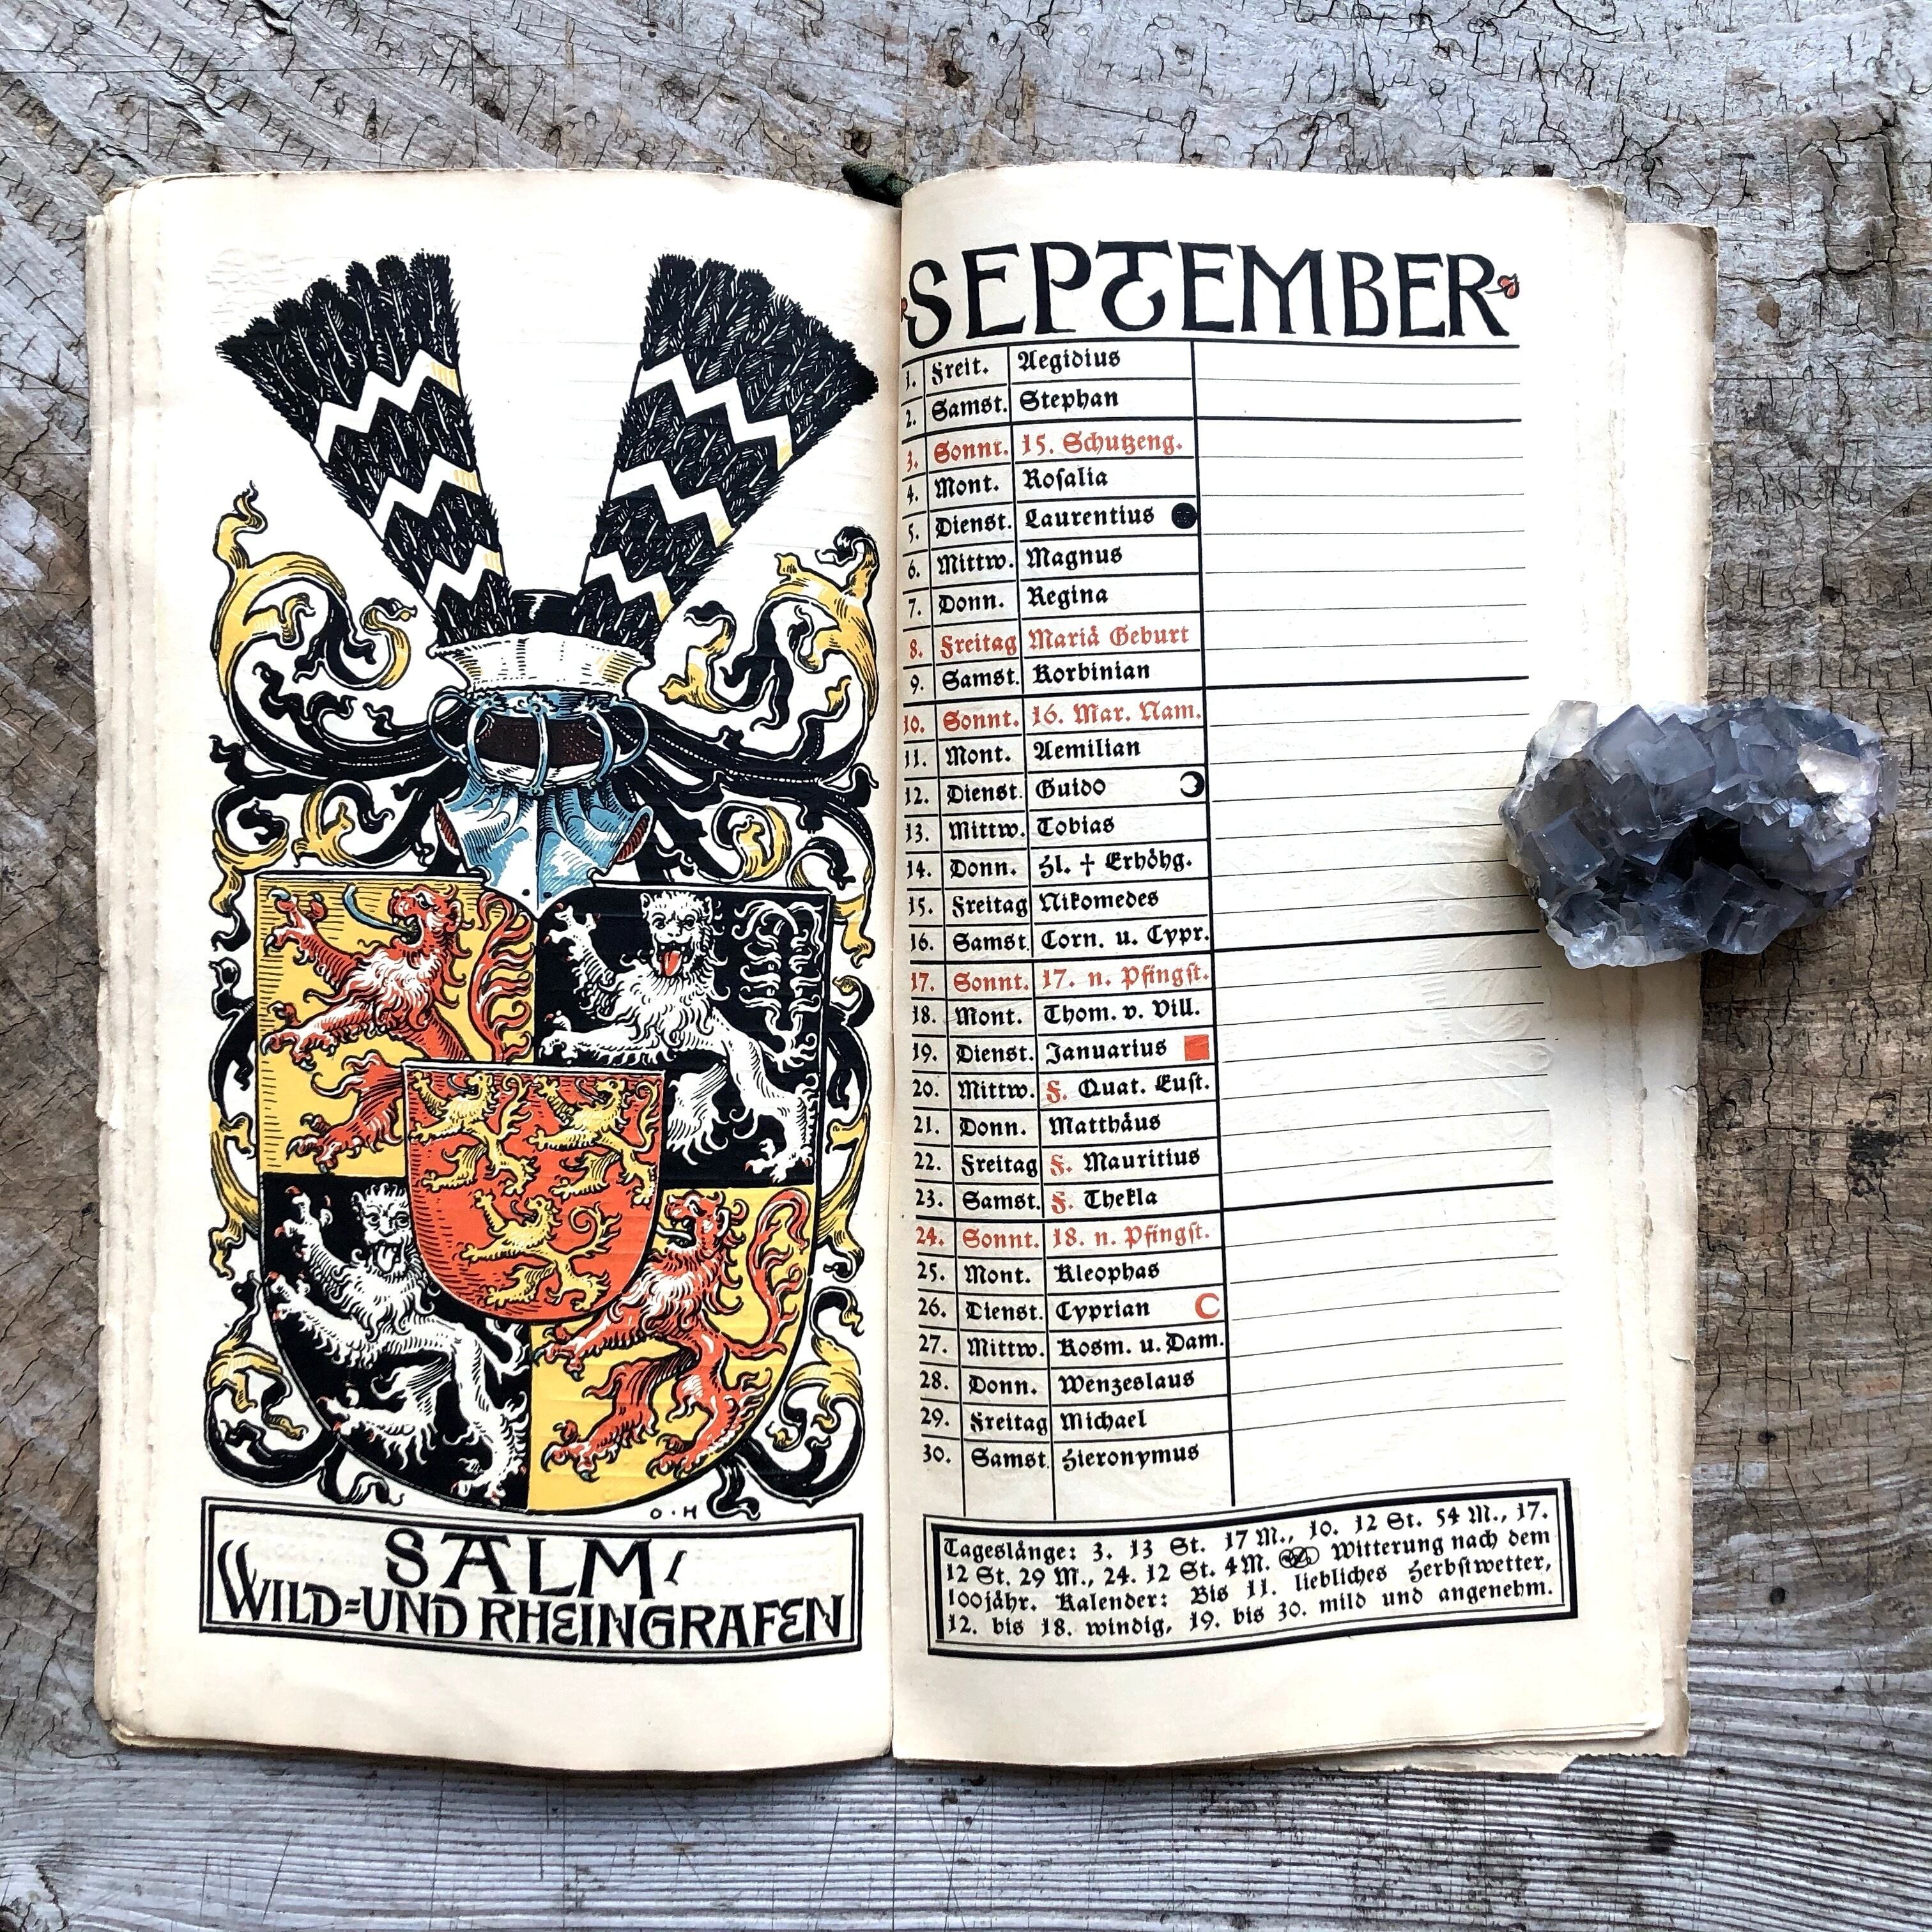 O·H
SALM/
WILD=UND RHEINGRAFEN
SEPTEMBER
1. Freit. Aegidius
2. Samst. Stephan
3. Sonnt. 15. Schutzeng.
4. Mont. Rosalia
5. Dienst. Laurentius
6. Mittw. Magnus
7. Donn. Regina
8. Freitag Mariä Geburt
9. Samst. Korbinian
10. Sonnt. 16. Mar. Nam.
11. Mont. Aemilian
12. Dienst. Guido
13. Mittw. Tobias
14. Donn. Hl. † Erhöhg.
15. Freitag Nikomedes
16. Samst. Corn. u. Cypr.
17. Sonnt. 17. n. Pfingst.
18. Mont. Thom. v. Vill.
19. Dienst. Januarius
20. Mittw. F. Quat. Eust.
21. Donn. Matthäus
22. Freitag F. Mauritius
23. Samst. F. Thekla
24. Sonnt. 18. n. Pfingst.
25. Mont. Kleophas
26. Dienst. Cyprian
27. Mittw. Kosm. u. Dam.
28. Donn. Wenzeslaus
29. Freitag Michael
30. Samst. Hieronymus
Tageslänge: 3. 13 St. 17 M., 10. 12 St. 54 M., 17.
12 St. 29 M., 24. 12 St. 4 M. Witterung nach dem
100jähr. Kalender: Bis 11. liebliches Herbstwetter,
12. bis 18. windig, 19. bis 30. mild und angenehm.